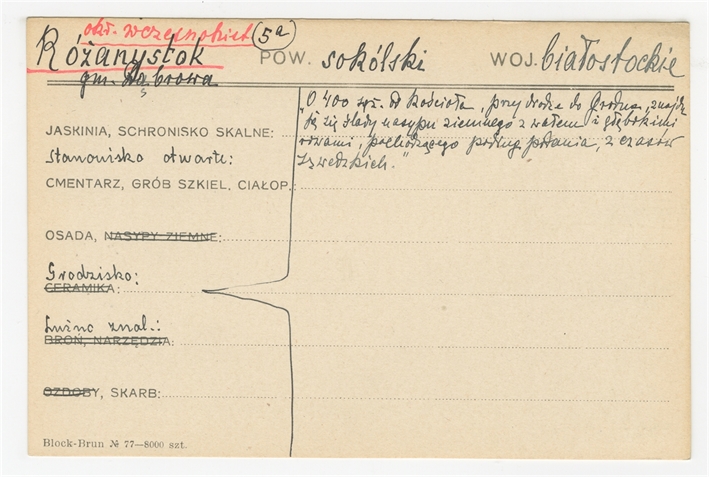 okr. wczesnohist (5a)
Różanystok POW. sokólski WOJ. białostockie
gm. Dąbrowa
"O 400 sąż. od kościoła, przy drodze do Grodna, znajdu
ją się ślady nasypu ziemnego z wałem i głębokimi
rowami, pochodzącego podług podania, z czasów
szwedzkich."
JASKINIA, SCHRONISKO SKALNE:
Stanowisko otwarte:
CMENTARZ, GRÓB SZKIEL. CIAŁOP.:
OSADA, NASYPY ZIEMNE:
Grodzisko:
CERAMIKA:
Luźno znal.:
BROŃ, NARZĘDZIA:
OZDOBY, SKARB:
Block-Brun № 77—8000 szt.